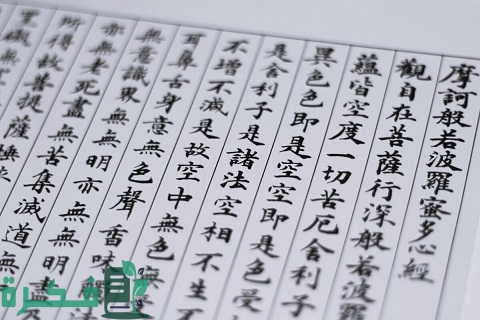 摩訶般若波羅蜜多心經
觀自在菩薩行深般若波羅
蘊皆空度一切苦厄舍利子
異色色即是空空即是色受
是舍利子是諸法空相不生不
不增不減是故空中無色無
耳鼻舌身意無色聲香味觸法
無意識界無無明亦無無明盡乃
亦無老死盡無苦集滅道無
所得故菩提薩埵
فكرة